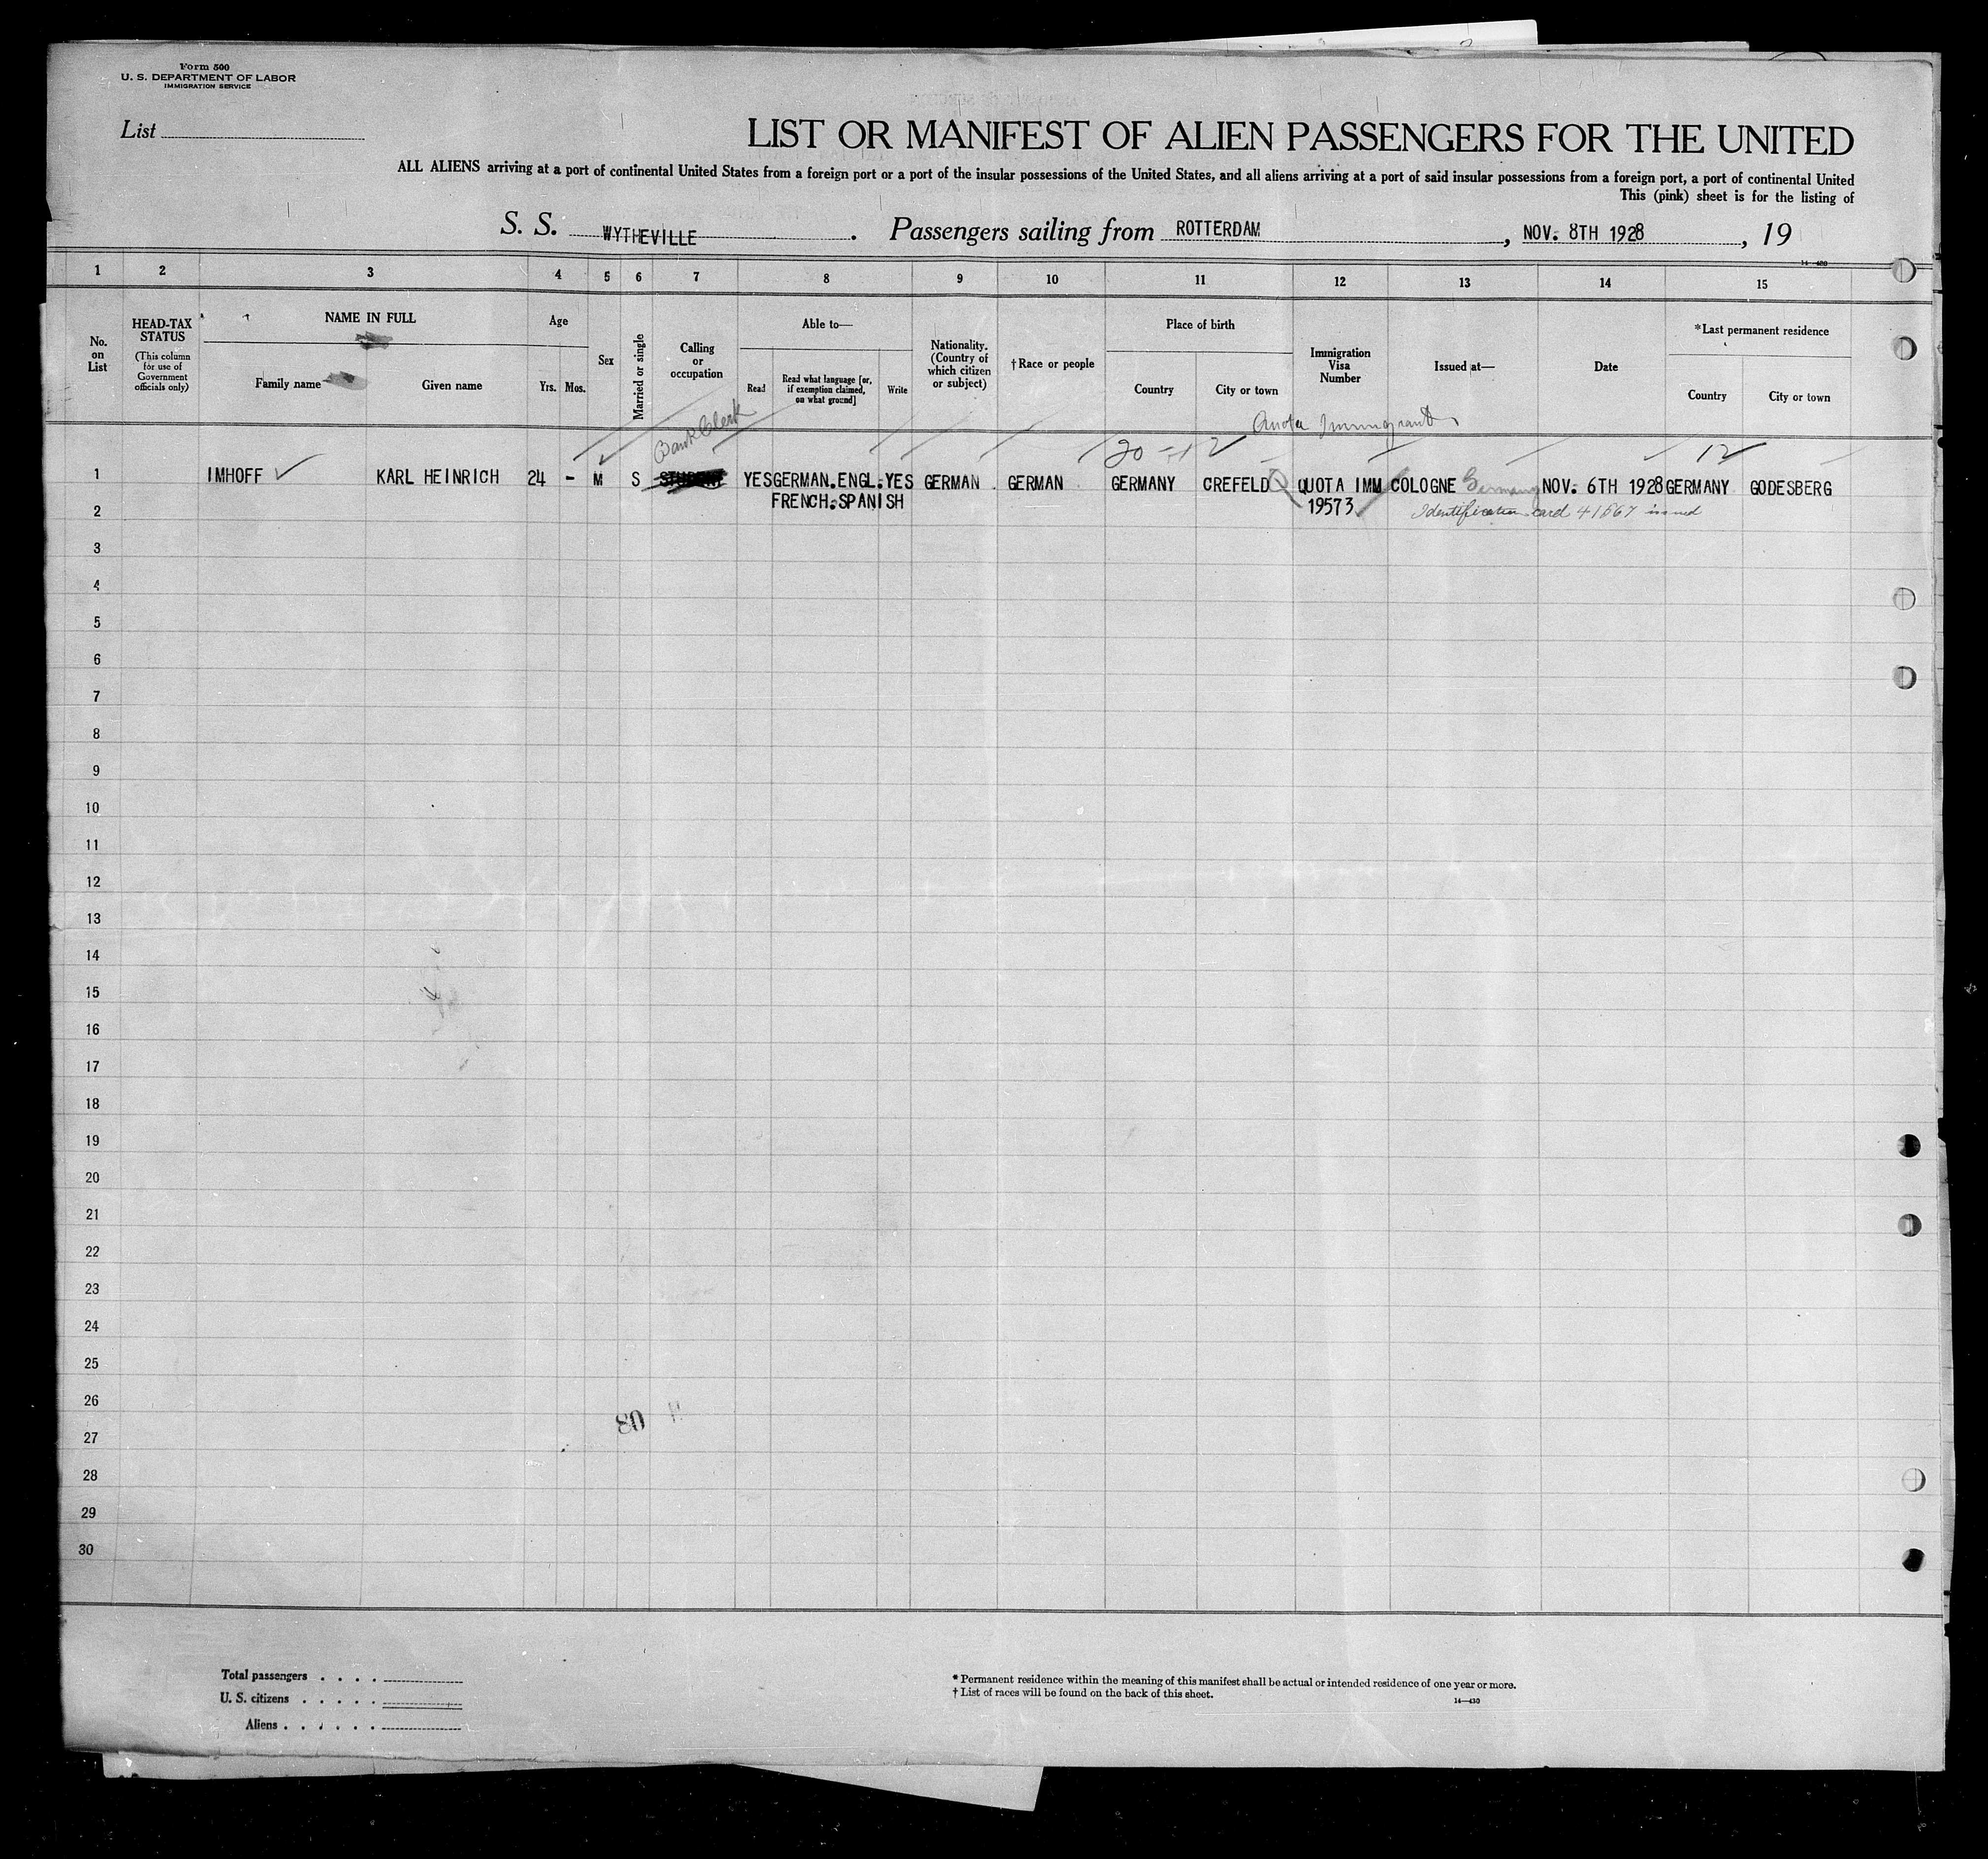 Form 500
U. S. DEPARTMENT OF LABOR
IMMIGRATION SERVICE
List
LIST OR MANIFEST OF ALIEN PASSENGERS FOR THE UNITED
ALL ALIENS arriving at a port of continental United States from a foreign port or a port of the insular possessions of the United States, and all aliens arriving at a port of said insular possessions from a foreign port, a port of continental United
This (pink) sheet is for the listing of
S. S. WYTHEVILLE. Passengers sailing from ROTTERDAM, NOV. 8TH 1928, 19
14—430
1 2 3 4 5 6 7 8 9 10 11 12 13 14 15
No. on List
HEAD-TAX STATUS
(This column for use of Government officials only)
NAME IN FULL
Family name
Given name
Age
Yrs. Mos.
Sex
Married or single
Calling or occupation
Able to—
Read
Read what language [or, if exemption claimed, on what ground]
Write
Nationality. (Country of which citizen or subject)
† Race or people
Place of birth
Country
City or town
Immigration Visa Number
Issued at—
Date
*Last permanent residence
Country
City or town
Bank Clerk
Quota Immigrant
20 12 12
1 IMHOFF KARL HEINRICH 24 - M S STUDENT YES GERMAN. ENGL. YES GERMAN GERMAN GERMANY CREFELD QUOTA IMM COLOGNE Germany NOV. 6TH 1928 GERMANY GODESBERG
2 FRENCH. SPANISH 19573 Identification card issued
3
4
5
6
7
8
9
10
11
12
13
14
15
16
17
18
19
20
21
22
23
24
25
26
27
28
29
30
Total passengers
U. S. citizens
Aliens
* Permanent residence within the meaning of this manifest shall be actual or intended residence of one year or more.
† List of races will be found on the back of this sheet.
14—430